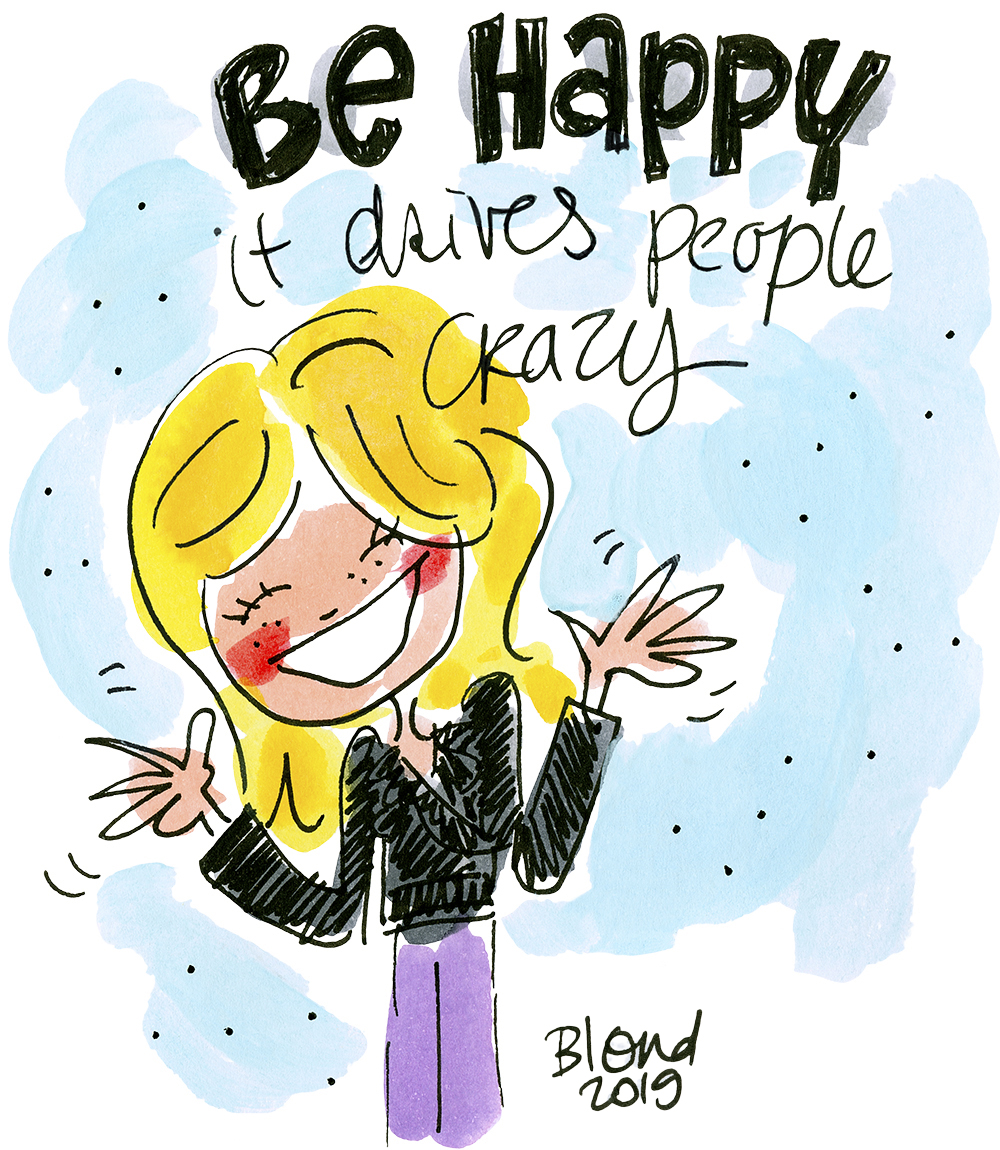 Be Happy
it drives people
crazy
Blond
2019